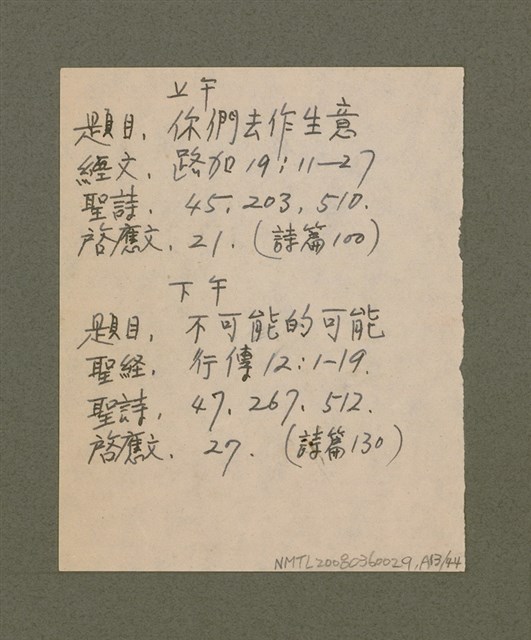 上午
題目, 你們去作生意
經文, 路加19:11—27
聖詩, 45, 203, 510.
啓應文, 21. (詩篇100)
下午
題目, 不可能的可能
聖経, 行傳12:1—19.
聖詩, 47, 267, 512.
啓應文, 27. (詩篇130)
NMTL20080360029, A13/44